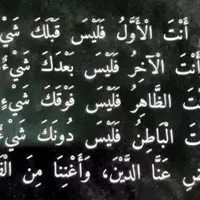 أَنْتَ الْأَوَّلُ فَلَيْسَ قَبْلَكَ شَيْ
أَنْتَ الْآخِرُ فَلَيْسَ بَعْدَكَ شَيْءٌ
تَ الظَّاهِرُ فَلَيْسَ فَوْقَكَ شَيْءٌ
تَ الْبَاطِنُ فَلَيْسَ دُونَكَ شَيْءٌ
ضِ عَنَّا الدَّيْنَ، وَأَغْنِنَا مِنَ الْفَ